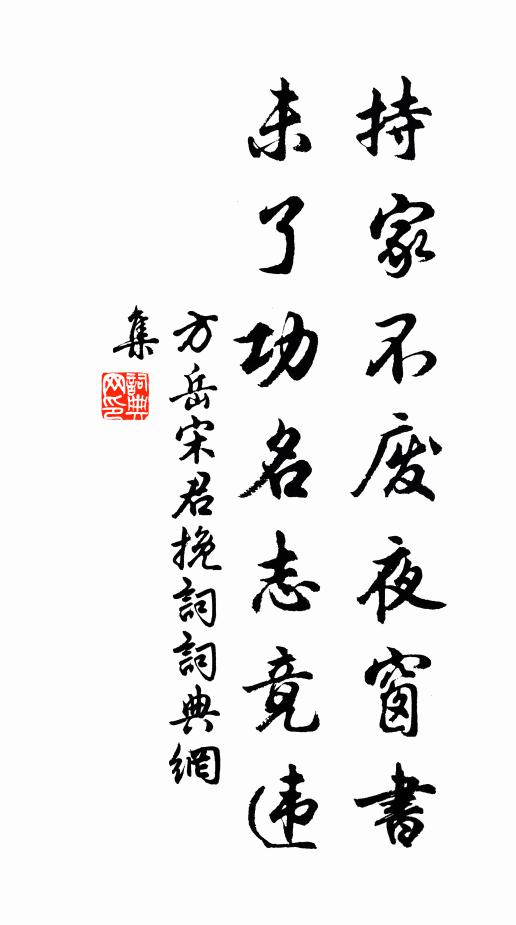 持家不废夜窗書
未了功名志竟违
方岳宋君挽詞詞典網
集
詞典
网印